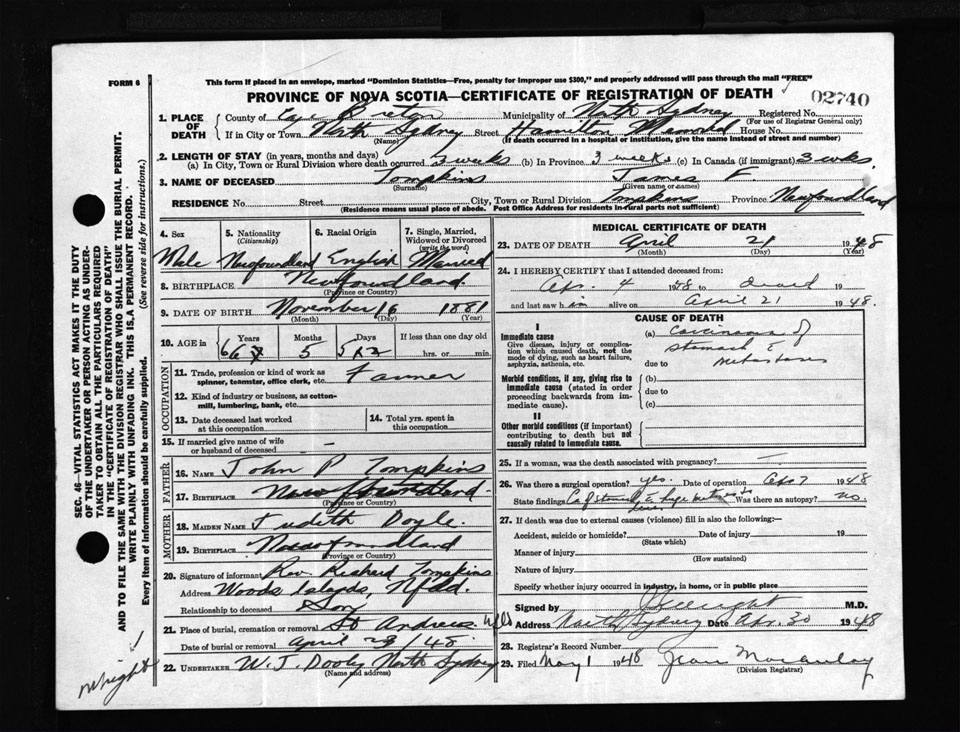 FORM 6
This form if placed in an envelope, marked "Dominion Statistics—Free, penalty for improper use $300," and properly addressed will pass through the mail "FREE"
PROVINCE OF NOVA SCOTIA—CERTIFICATE OF REGISTRATION OF DEATH
02740
1. PLACE OF DEATH
County of Cape Breton Municipality of North Sydney Registered No.
(For use of Registrar General only)
If in City or Town North Sydney Street Hamilton Memorial House No.
(Name) (If death occurred in a hospital or institution, give the name instead of street and number)
2. LENGTH OF STAY (in years, months and days)
(a) In City, Town or Rural Division where death occurred 3 weeks (b) In Province 3 weeks (c) In Canada (if immigrant) 3 wks.
3. NAME OF DECEASED Tompkins James F.
(Surname) (Given name or names)
RESIDENCE No. Street City, Town or Rural Division Tompkins Province Newfoundland
(Residence means usual place of abode. Post Office Address for residents in rural parts not sufficient)
4. Sex 5. Nationality (Citizenship) 6. Racial Origin 7. Single, Married, Widowed or Divorced (write the word)
Male Newfoundland English Married
8. BIRTHPLACE Newfoundland
(Province or Country)
9. DATE OF BIRTH November 16 1881
(Month) (Day) (Year)
10. AGE in Years Months Days If less than one day old
66 5 5 hrs. or min.
OCCUPATION
11. Trade, profession or kind of work as spinner, teamster, office clerk, etc. Farmer
12. Kind of industry or business, as cotton-mill, lumbering, bank, etc.
13. Date deceased last worked at this occupation
14. Total yrs. spent in this occupation
15. If married give name of wife or husband of deceased –
FATHER
16. NAME John P Tompkins
17. BIRTHPLACE Newfoundland
(Province or Country)
MOTHER
18. MAIDEN NAME Judith Doyle
19. BIRTHPLACE Newfoundland
(Province or Country)
20. Signature of informant Rev. Richard Tompkins
Address Woods Islands, Nfld.
Relationship to deceased Son
21. Place of burial, cremation or removal St Andrews Nfld
Date of burial or removal April 23/48
22. UNDERTAKER W. J. Dooley North Sydney
(Name and address)
MEDICAL CERTIFICATE OF DEATH
23. DATE OF DEATH April 21 1948
(Month) (Day) (Year)
24. I HEREBY CERTIFY that I attended deceased from:
Apr. 4 1948 to death 19
and last saw him alive on April 21 1948.
CAUSE OF DEATH
I
Immediate cause
Give disease, injury or complication which caused death, not the mode of dying, such as heart failure, asphyxia, asthenia, etc.
(a) Carcinoma of stomach & metastases
due to
Morbid conditions, if any, giving rise to immediate cause (stated in order proceeding backwards from immediate cause).
(b)
due to
(c)
II
Other morbid conditions (if important) contributing to death but not causally related to immediate cause.
25. If a woman, was the death associated with pregnancy? –
26. Was there a surgical operation? yes. Date of operation Apr 7 1948
State findings Ca of stomach Was there an autopsy? no.
27. If death was due to external causes (violence) fill in also the following:—
Accident, suicide or homicide? Date of injury 19
(State which)
Manner of injury
(How sustained)
Nature of injury
Specify whether injury occurred in industry, in home, or in public place
Signed by Wright M.D.
Address North Sydney Date Apr. 30 1948
28. Registrar's Record Number
29. Filed May 1 1948 Jean Macaulay
(Division Registrar)
SEC. 46—VITAL STATISTICS ACT MAKES IT THE DUTY
OF THE UNDERTAKER OR PERSON ACTING AS UNDER-
TAKER TO OBTAIN ALL THE PARTICULARS REQUIRED
IN THE "CERTIFICATE OF REGISTRATION OF DEATH"
AND TO FILE THE SAME WITH THE DIVISION REGISTRAR WHO SHALL ISSUE THE BURIAL PERMIT.
WRITE PLAINLY WITH UNFADING INK. THIS IS A PERMANENT RECORD.
Every item of information should be carefully supplied. (See reverse side for instructions.)
Wright